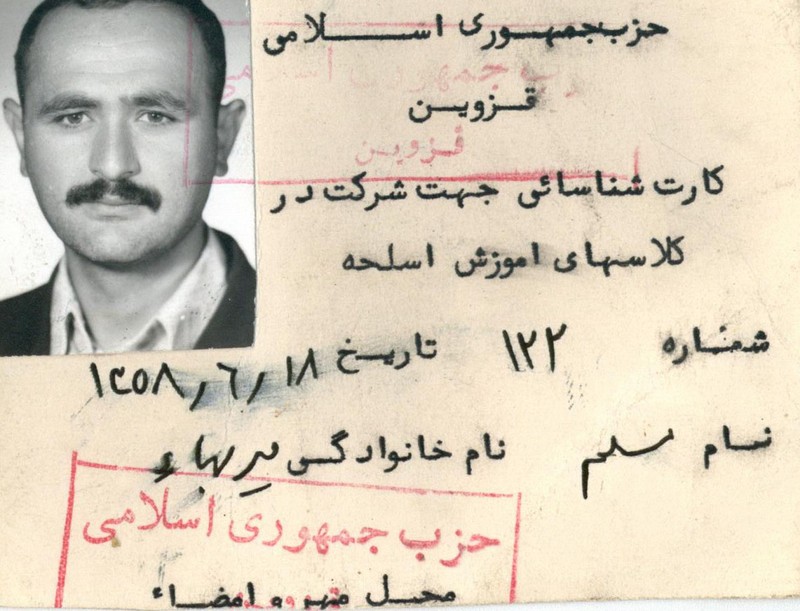 حزب جمهوری اسلامی
قزوین
کارت شناسائی جهت شرکت در
کلاسهای اموزش اسلحه
شماره ۱۲۲ تاریخ ۱۳۵۸/۶/۱۸
نام نام خانوادگی
حزب جمهوری اسلامی
محل مهر و امضاء